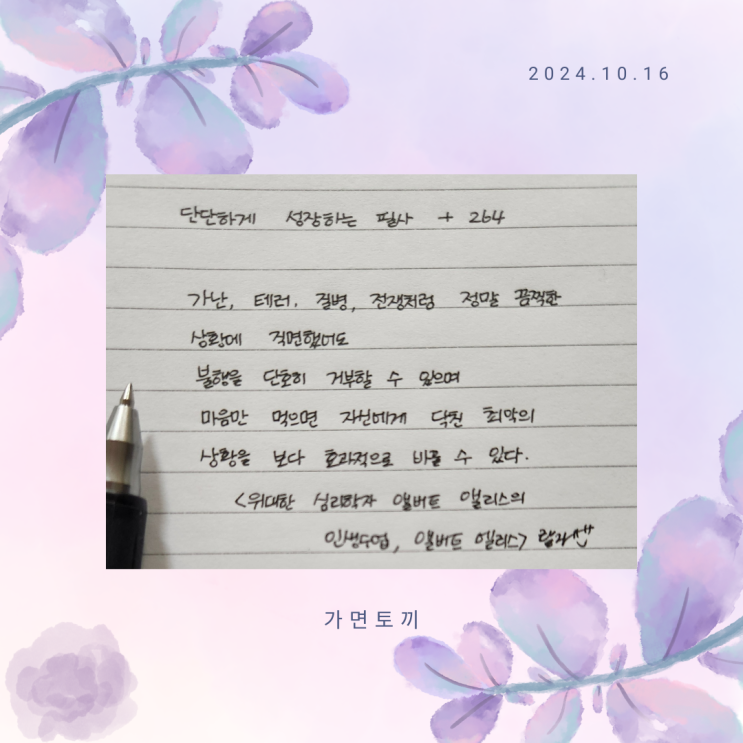 2024.10.16
단단하게 성장하는 필사 + 264
가난, 테러, 질병, 전쟁처럼 정말 끔찍한
상황에 직면했어도
불행을 단호히 거부할 수 있으며
마음만 먹으면 자신에게 닥친 최악의
상황을 보다 효과적으로 바꿀 수 있다.
<위대한 심리학자 앨버트 앨리스의
인생수업, 앨버트 엘리스>
가면토끼